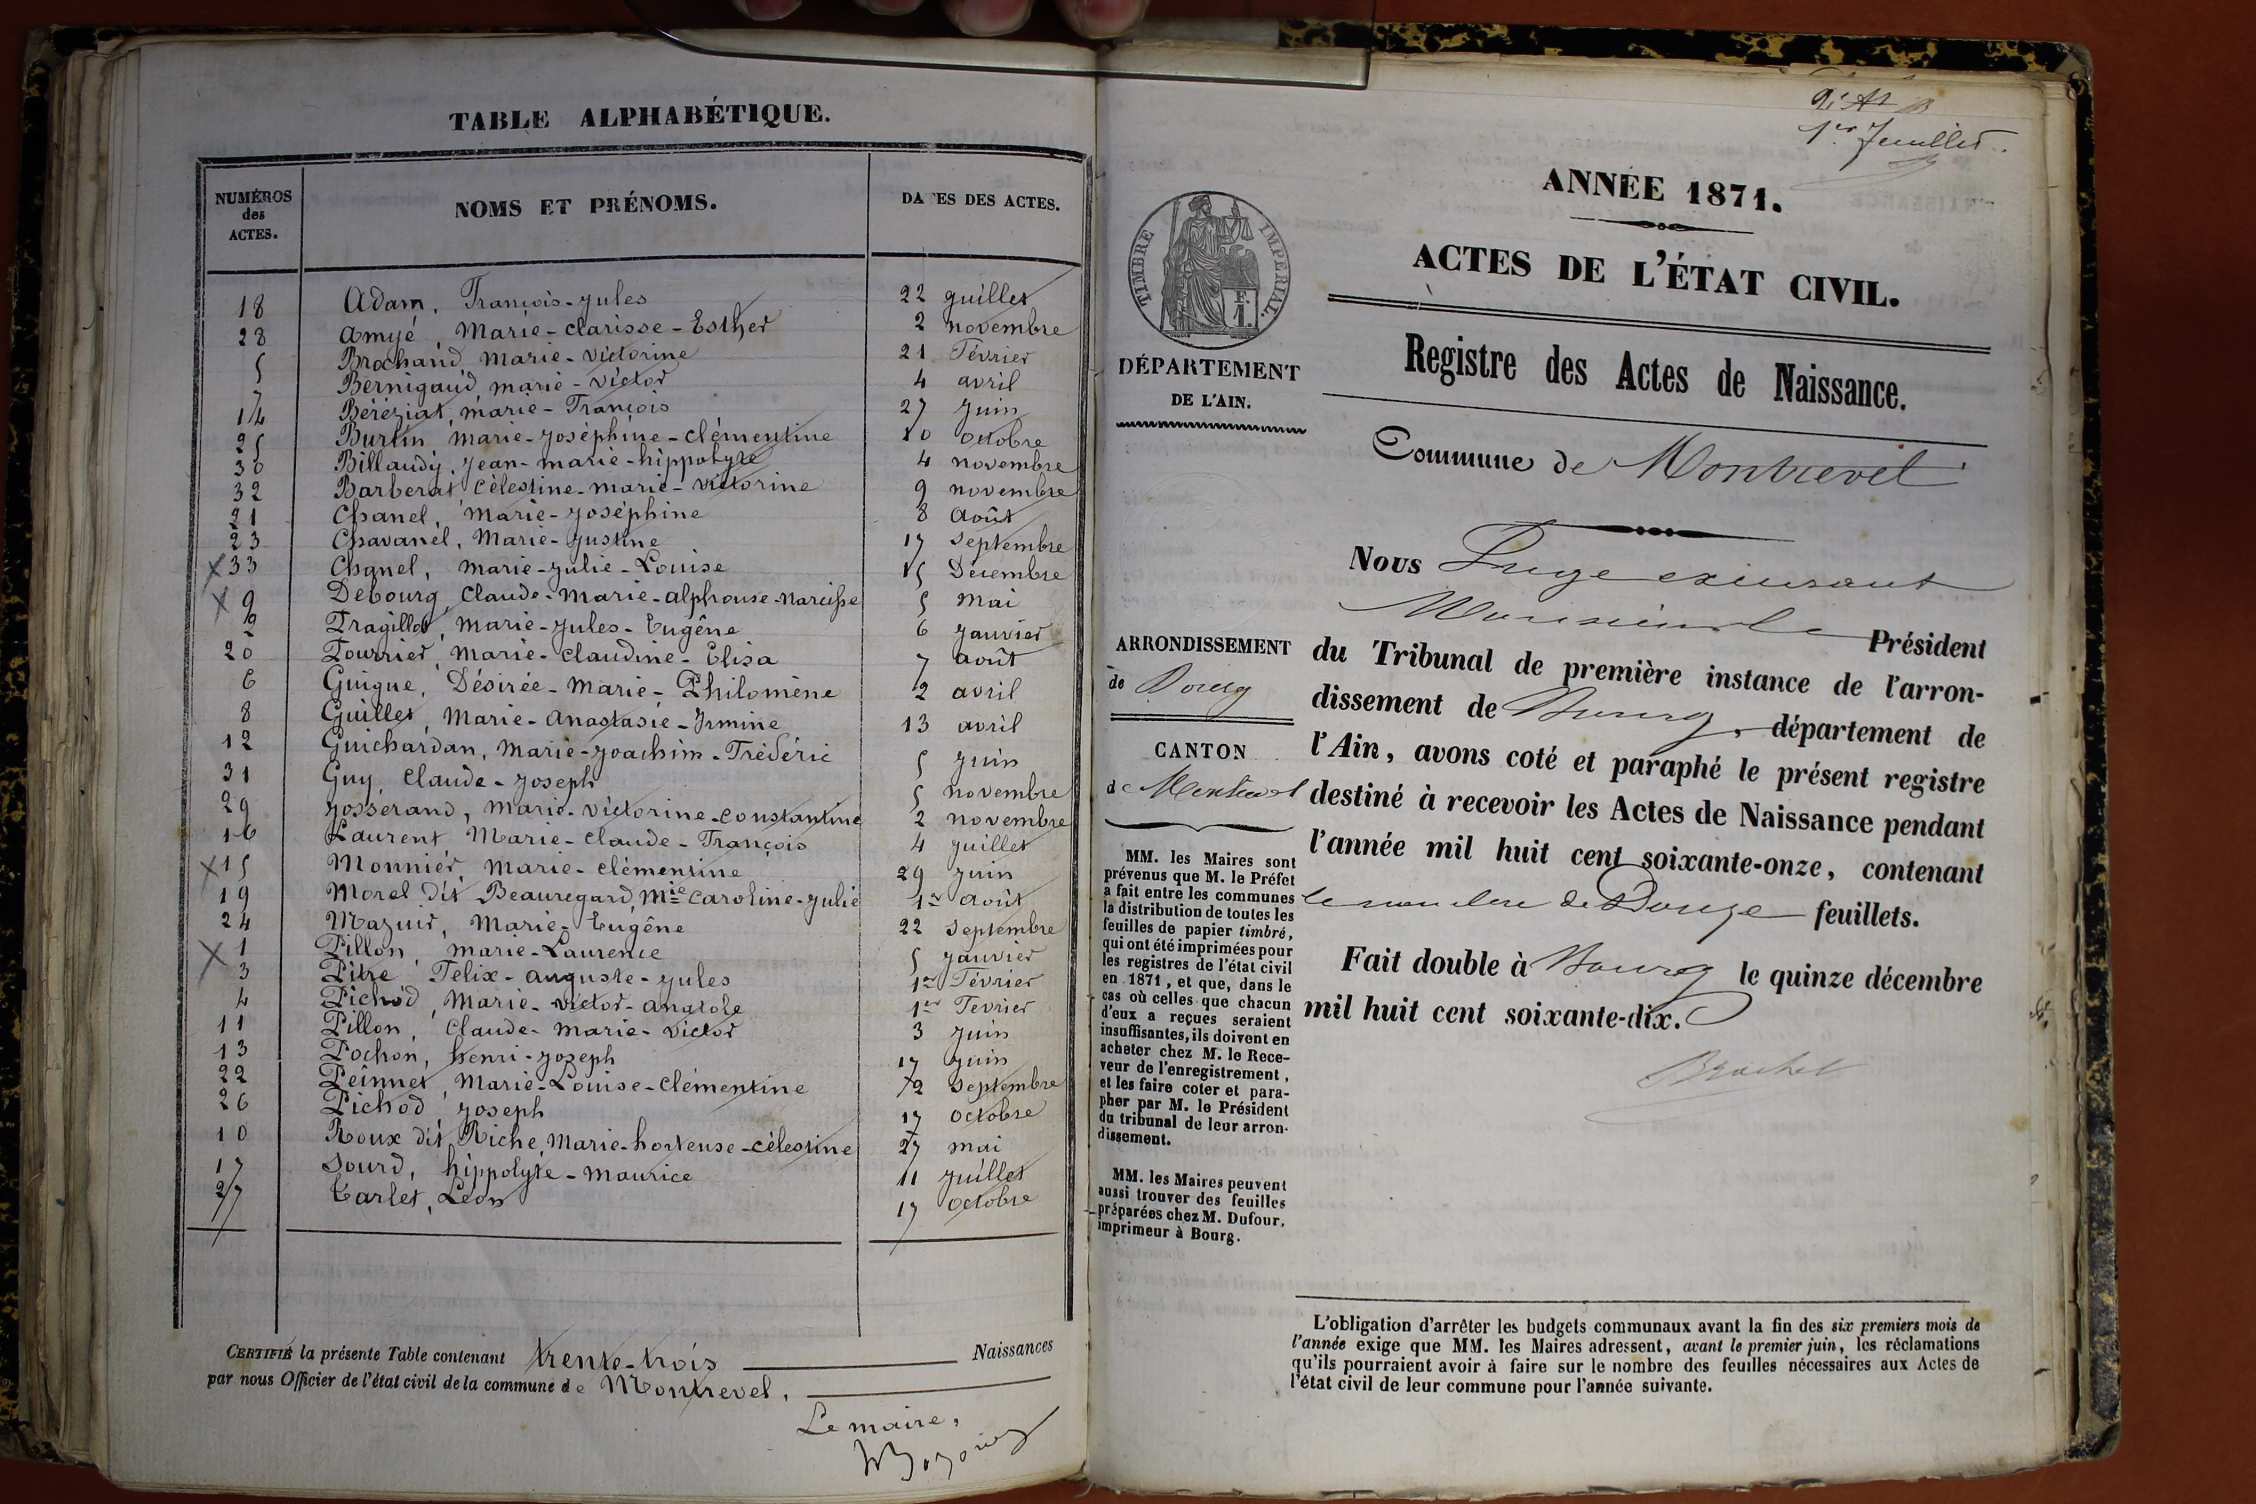 TABLE ALPHABÉTIQUE.
NUMÉROS des ACTES. NOMS ET PRÉNOMS. DATES DES ACTES.
18 Adam, François-Jules 22 Juillet
28 Amyé, Marie-Clarisse-Esther 2 novembre
5 Brochand, Marie-Victorine 21 Février
7 Bernigaud, Marie-Victor 4 avril
14 Béréziat, Marie-François 27 Juin
25 Burtin, Marie-Joséphine-Clémentine 10 octobre
30 Billaudy, Jean-Marie-hippolyte 4 novembre
32 Barberat, Célestine-Marie-Victorine 9 novembre
21 Chanel, Marie-Joséphine 8 Août
23 Chavanel, Marie-Justine 17 Septembre
33 Chanel, Marie-Julie-Louise 15 Décembre
9 Debourg, Claude-Marie-alphonse-Narcisse 5 Mai
2 Fragillot, Marie-Jules-Eugène 6 Janvier
20 Fourrier, Marie-Claudine-Elisa 7 août
6 Guigue, Désirée-Marie-Philomène 2 avril
8 Guillet, Marie-Anastasie-Irmine 13 avril
12 Guichardan, Marie-Joachim-Frédéric 5 Juin
31 Guy, Claude-Joseph 5 novembre
29 Josserand, Marie-Victorine-Constantine 2 novembre
16 Laurent, Marie-Claude-François 4 Juillet
15 Monnier, Marie-Clémentine 29 Juin
19 Morel dit Beauregard, Mie Caroline-Julie 1er Août
24 Mazuir, Marie-Eugène 22 Septembre
1 Pillon, Marie-Laurence 5 Janvier
3 Pitre Félix-auguste-Jules 1er Février
4 Pichod, Marie-Victor-Anatole 1er Février
11 Pillon, Claude-Marie-Victor 3 Juin
13 Pochon, henri-Joseph 17 Juin
22 Peinnet, Marie-Louise-Clémentine 12 Septembre
26 Pichod, Joseph 17 octobre
10 Roux dit Riche, Marie-hortense-Célestine 27 mai
17 Sourd, hippolyte-Maurice 11 Juillet
27 Tarlet, Léon 17 octobre
CERTIFIÉ la présente Table contenant trente-trois Naissances
par nous Officier de l'état civil de la commune de Montrevel.
Le maire,
1er Feuillet.
ANNÉE 1871.
ACTES DE L'ÉTAT CIVIL.
TIMBRE IMPÉRIAL.
F. 1.
DÉPARTEMENT
DE L'AIN.
Registre des Actes de Naissance.
Commune de Montrevel
Nous Juge exerçant
Monsieur le Président
du Tribunal de première instance de l'arron-
dissement de Bourg, département de
l'Ain, avons coté et paraphé le présent registre
destiné à recevoir les Actes de Naissance pendant
l'année mil huit cent soixante-onze, contenant
le nombre de Douze feuillets.
Fait double à Bourg le quinze décembre
mil huit cent soixante-dix.
ARRONDISSEMENT
de Bourg
CANTON
de Montrevel
MM. les Maires sont
prévenus que M. le Préfet
a fait entre les communes
la distribution de toutes les
feuilles de papier timbré,
qui ont été imprimées pour
les registres de l'état civil
en 1871, et que, dans le
cas où celles que chacun
d'eux a reçues seraient
insuffisantes, ils doivent en
acheter chez M. le Rece-
veur de l'enregistrement,
et les faire coter et para-
pher par M. le Président
du tribunal de leur arron-
dissement.
MM. les Maires peuvent
aussi trouver des feuilles
préparées chez M. Dufour,
imprimeur à Bourg.
L'obligation d'arrêter les budgets communaux avant la fin des six premiers mois de
l'année exige que MM. les Maires adressent, avant le premier juin, les réclamations
qu'ils pourraient avoir à faire sur le nombre des feuilles nécessaires aux Actes de
l'état civil de leur commune pour l'année suivante.